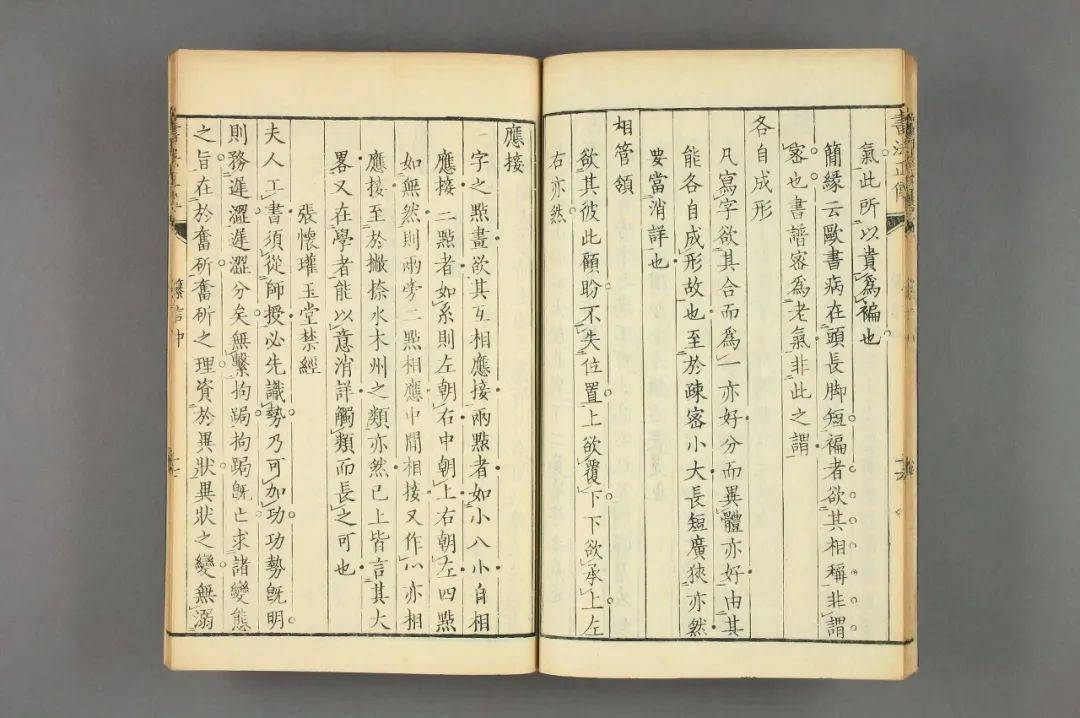 書法正傳
氣此所以貴爲褊也
簡緣云歐書病在頭長脚短褊者欲其相稱非謂
密也書譜密爲老氣非此之謂
各自成形
凡寫字欲其合而爲一亦好分而異體亦好由其
能各自成形故也至於疎密小大長短廣狹亦然
要當消詳也
相管領
欲其彼此顧盼不失位置上欲覆下下欲承上左
右亦然
應接
字之點畫欲其互相應接兩點者如小八小自相
應接二點者如系則左朝右中朝上右朝左四點
如無然則兩旁二點相應中間相接又作灬亦相
應接至於撇捺水木州之類亦然已上皆言其大
畧又在學者能以意消詳觸類而長之可也
張懷瓘玉堂禁經
夫人工書須從師授必先識勢乃可加功功勢旣明
則務遲澀遲澀分矣無繫拘跼拘跼旣亡求諸變態
之旨在於奮斫奮斫之理資於異狀異狀之變無溺